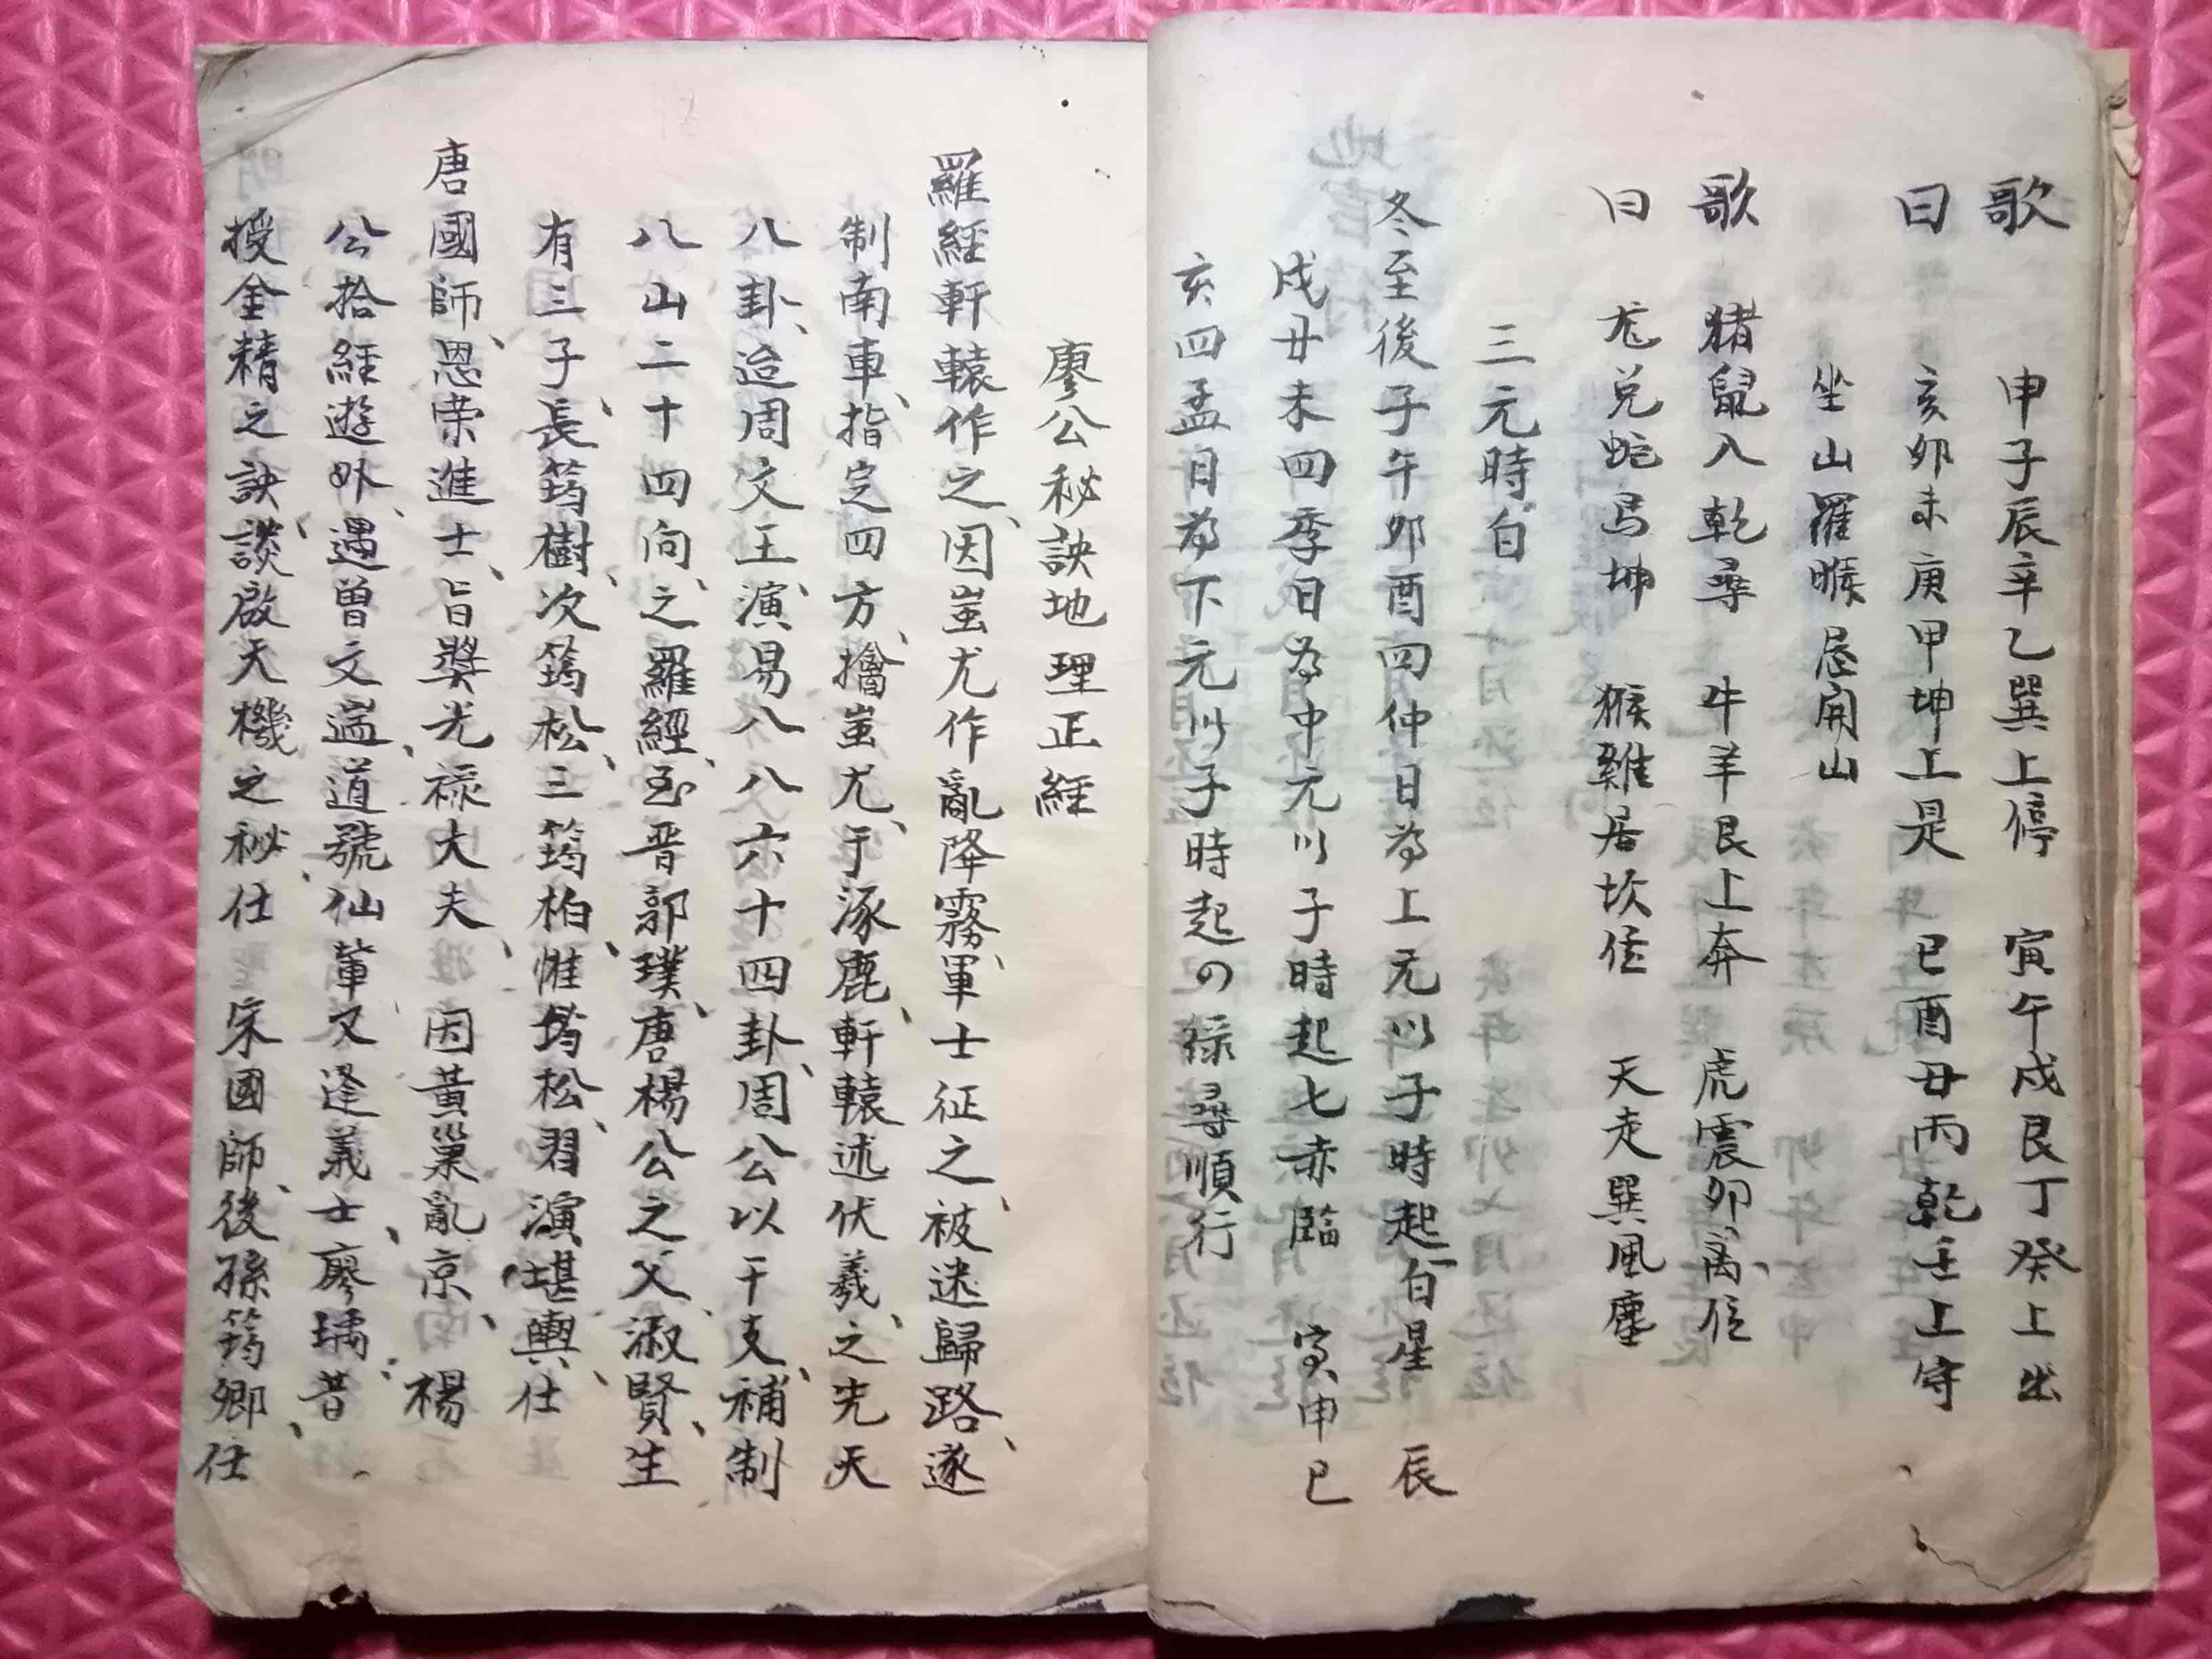 歌　申子辰辛乙巽上停　寅午戌艮丁癸上出
曰　亥卯未庚甲坤上是　巳酉丑丙乾壬上守
坐山羅睺忌開山
歌　猪鼠入乾尋　牛羊艮上奔　虎震卯离位
曰　尨兑蛇馬坤　猴雞居坎位　犬走巽風塵
三元時白
冬至後子午卯酉四仲日為上元以子時起一白星　辰
戌丑未四季日為中元以子時起七赤臨　寅申巳
亥四孟日為下元以子時起の綠尋順行
廖公秘訣地理正經
羅經軒轅作之、因蚩尤作亂降霧、軍士征之、被迷歸路、遂
制南車、指定四方、擒蚩尤、于涿鹿、軒轅述伏羲、之先天
八卦、迨周文王、演易八八六十四卦、周公以干支、補制
八山二十四向、之羅經、至晋郭璞、唐楊公之父、淑賢、生
有三子、長筠樹、次筠松、三筠柏、惟筠松、習演堪輿、仕
唐國師、恩荣進士、旨奬光禄大夫、因黃巢亂京、楊
公拾經遊外、遇曾文辿、道號仙輩又逢義士、廖瑀、昔
授金精之訣、談啟天機之秘、仕宋國師、後孫筠卿、仕